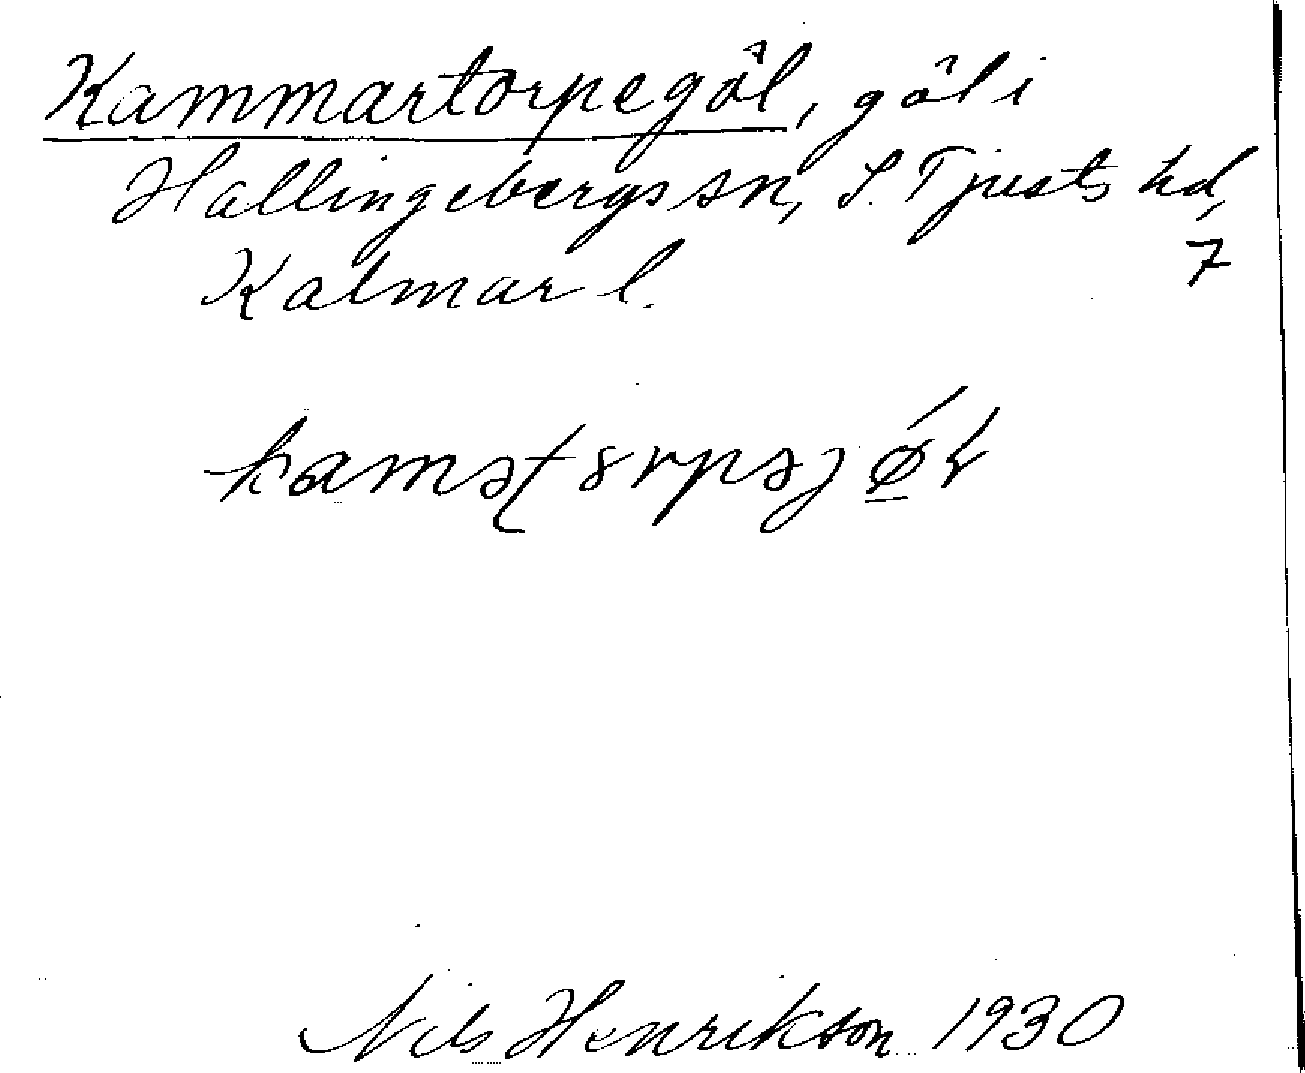 Kammartorpegöl, göl i
Hallingebergs sn, S. Tjusts hd,
Kalmar l.
7
Nils Henrikson 1930